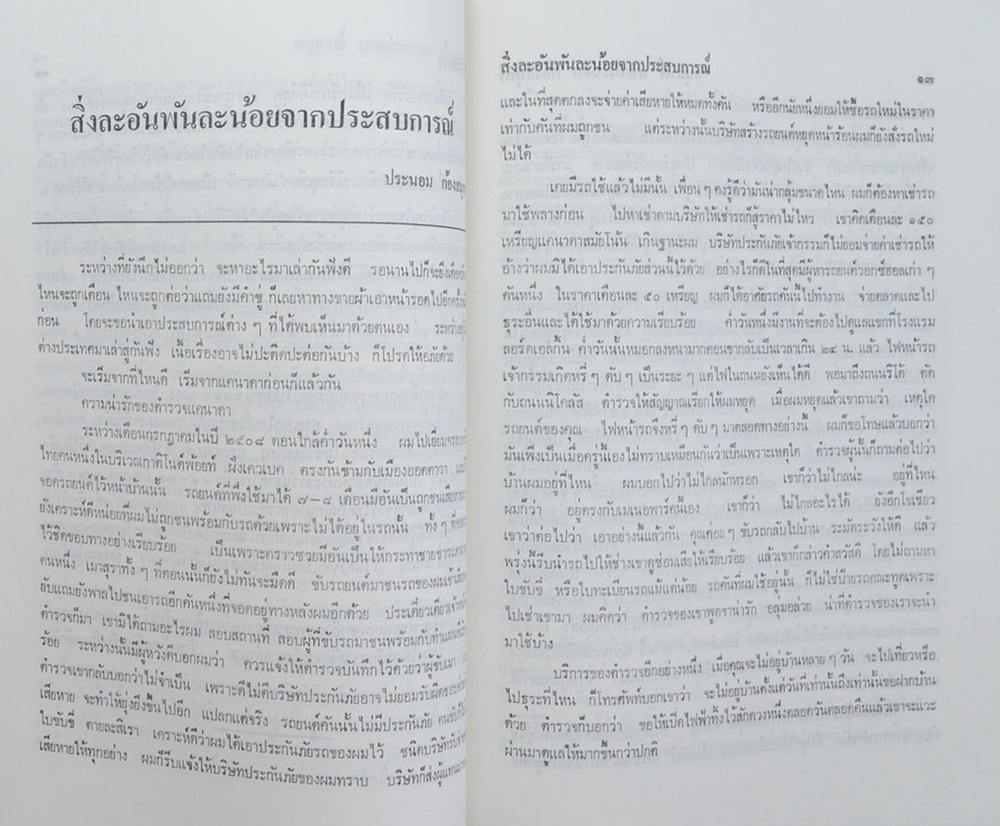 สิ่งละอันพันละน้อยจากประสบการณ์
ประนอม
ระหว่างที่ยังนึกไม่ออกว่า จะหาอะไรมาเล่ากันฟังดี รอนานไปก็จะยิ่งเดือด
ไหนจะถูกเตือน ไหนจะถูกต่อว่าแถมยังมีคำขู่ ก็เลยหาทางขายผ้าเอาหน้ารอดไปอีก
ก่อน โดยจะขอนำเอาประสบการณ์ต่าง ๆ ที่ได้พบเห็นมาด้วยตนเอง
ต่างประเทศมาเล่าสู่กันฟัง เนื้อเรื่องอาจไม่ปะติดปะต่อกันบ้าง ก็โปรดให้อภัยด้วย
จะเริ่มจากที่ไหนดี เริ่มจากแคนาดาก่อนก็แล้วกัน
ความน่ารักของตำรวจแคนาดา
ระหว่างเดือนกรกฎาคมในปี ๒๕๐๘ ตอนใกล้ค่ำวันหนึ่ง ผมไปเยี่ยม
ไทยคนหนึ่งในบริเวณกาติโนต์พ้อยท์ ฝั่งเควเบค ตรงกันข้ามกับเมืองออตตาวา
จอดรถยนต์ไว้หน้าบ้านนั้น รถยนต์ที่พึ่งใช้มาได้ ๗–๘ เดือนมีอันเป็นถูกชน
ยังเคราะห์ดีหน่อยที่ผมไม่ถูกชนพร้อมกับรถด้วยเพราะไม่ได้อยู่ในรถนั้น ทั้ง ๆ ที่
ไว้ชิดขอบทางอย่างเรียบร้อย เป็นเพราะคราวซวยมีอันเป็นให้กระทาชาย
คนหนึ่ง เมาสุราทั้ง ๆ ที่ตอนนั้นก็ยังไม่ทันจะมืดดี ขับรถยนต์มาชนรถของผมเข้า
ยับแถมยังพาลไปชนเอารถอีกคันหนึ่งที่จอดอยู่ทางหลังผมอีกด้วย ประเดี๋ยวเดียว
ตำรวจก็มา เขามิได้ถามอะไรผม สอบสถานที่ สอบผู้ที่ขับรถมาชนพร้อมกับทำแผนที่
ร้อย ระหว่างนั้นมีผู้หวังดีบอกผมว่า ควรแจ้งให้ตำรวจบันทึกไว้ด้วยว่าผู้ขับเมา
ตำรวจเขากลับบอกว่าไม่จำเป็น เพราะดีไม่ดีบริษัทประกันภัยอาจไม่ยอมรับผิดชอบ
เสียหาย จะทำให้ยุ่งยิ่งขึ้นไปอีก แปลกแต่จริง รถยนต์คันนั้นไม่มีประกันภัย
ใบขับขี่ ตายละสิเรา เคราะห์ดีที่ว่าผมได้เอาประกันภัยรถของผมไว้ ชนิดบริษัท
เสียหายให้ทุกอย่าง ผมก็รีบแจ้งให้บริษัทประกันภัยของผมทราบ บริษัทก็ส่งผู้แทน
สิ่งละอันพันละน้อยจากประสบการณ์
๑๓
และในที่สุดตกลงจะจ่ายค่าเสียหายให้หมดทั้งคัน หรืออีกนัยหนึ่งยอมให้ซื้อรถใหม่ในราคา
เท่ากับคันที่ผมถูกชน แต่ระหว่างนั้นบริษัทสร้างรถยนต์หยุดหน้าร้อนผมก็ยังสั่งรถใหม่
ไม่ได้
เคยมีรถใช้แล้วไม่มีนั้น เพื่อน ๆ คงรู้ดีว่ามันน่ากลุ้มขนาดไหน ผมก็ต้องหาเช่ารถ
มาใช้พลางก่อน ไปหาเช่าตามบริษัทให้เช่ารถก็สู้ราคาไม่ไหว เขาคิดเดือนละ ๑๕๐
เหรียญแคนาดาสมัยโน้น เกินฐานะผม บริษัทประกันภัยเจ้ากรรมก็ไม่ยอมจ่ายค่าเช่ารถให้
อ้างว่าผมมิได้เอาประกันภัยส่วนนี้ไว้ด้วย อย่างไรก็ดีในที่สุดมีผู้หารถยนต์วอกซ์ฮอลเก่า ๆ
คันหนึ่ง ในราคาเดือนละ ๕๐ เหรียญ ผมก็ได้อาศัยรถคันนี้ไปทำงาน จ่ายตลาดและไป
ธุระอื่นและได้ใช้มาด้วยความเรียบร้อย ค่ำวันหนึ่งมีงานที่จะต้องไปดูแลแขกที่โรงแรม
ลอร์ดเอลกิ้น ค่ำวันนั้นหมอกลงหนามากตอนขากลับเป็นเวลาเกิน ๒๔ น. แล้ว ไฟหน้ารถ
เจ้ากรรมเกิดหรี่ ๆ ดับ ๆ เป็นระยะ ๆ แต่ไฟในถนนยังเห็นได้ดี พอมาถึงถนนริโด้ ตัด
กับถนนนิโคลัส ตำรวจให้สัญญาณเรียกให้ผมหยุด เมื่อผมหยุดแล้วเขาถามว่า เหตุใด
รถยนต์ของคุณ ไฟหน้ารถจึงหรี่ ๆ ดับ ๆ มาตลอดทางอย่างนี้ ผมก็ขอโทษแล้วบอกว่า
มันเพิ่งเป็นเมื่อครู่นี้เองไม่ทราบเหมือนกันว่าเป็นเพราะเหตุใด ตำรวจผู้นั้นก็ถามต่อไปว่า
บ้านผมอยู่ที่ไหน ผมบอกไปว่าไม่ไกลนักหรอก เขาก็ว่าไม่ไกลน่ะ อยู่ที่ไหน
ผมก็ว่า อยู่ตรงกับเมเนอพาร์คนี่เอง เขาก็ว่า ไม่ไกลอะไรได้ ยังอีกโขเชียว
เขาว่าต่อไปว่า เอาอย่างนี้แล้วกัน คุณค่อย ๆ ขับรถกลับไปบ้าน ระมัดระวังให้ดี แล้ว
พรุ่งนี้รีบนำรถไปให้ช่างเขาดูซ่อมเสียให้เรียบร้อย แล้วเขาก็กล่าวคำสวัสดี โดยไม่ถามหา
ใบขับขี่ หรือใบทะเบียนรถแม้แต่น้อย รถคันที่ผมใช้อยู่นั้น ก็ไม่ใช่ป้ายรถคณะทูตเพราะ
ไปเช่าเขามา ผมคิดว่า ตำรวจของเขาพูดจาน่ารัก อลุ่มอล่วย น่าที่ตำรวจของเราจะนำ
มาใช้บ้าง
บริการของตำรวจอีกอย่างหนึ่ง เมื่อคุณจะไม่อยู่บ้านหลาย ๆ วัน จะไปเที่ยวหรือ
ไปธุระที่ไหน ก็โทรศัพท์บอกเขาว่า จะไม่อยู่บ้านตั้งแต่วันที่เท่านั้นถึงเท่านั้นขอฝากบ้าน
ด้วย ตำรวจก็บอกว่า ขอให้เปิดไฟฟ้าทิ้งไว้สักดวงหนึ่งตลอดวันตลอดคืนแล้วเขาจะแวะ
ผ่านมาดูแลให้มากขึ้นกว่าปกติ